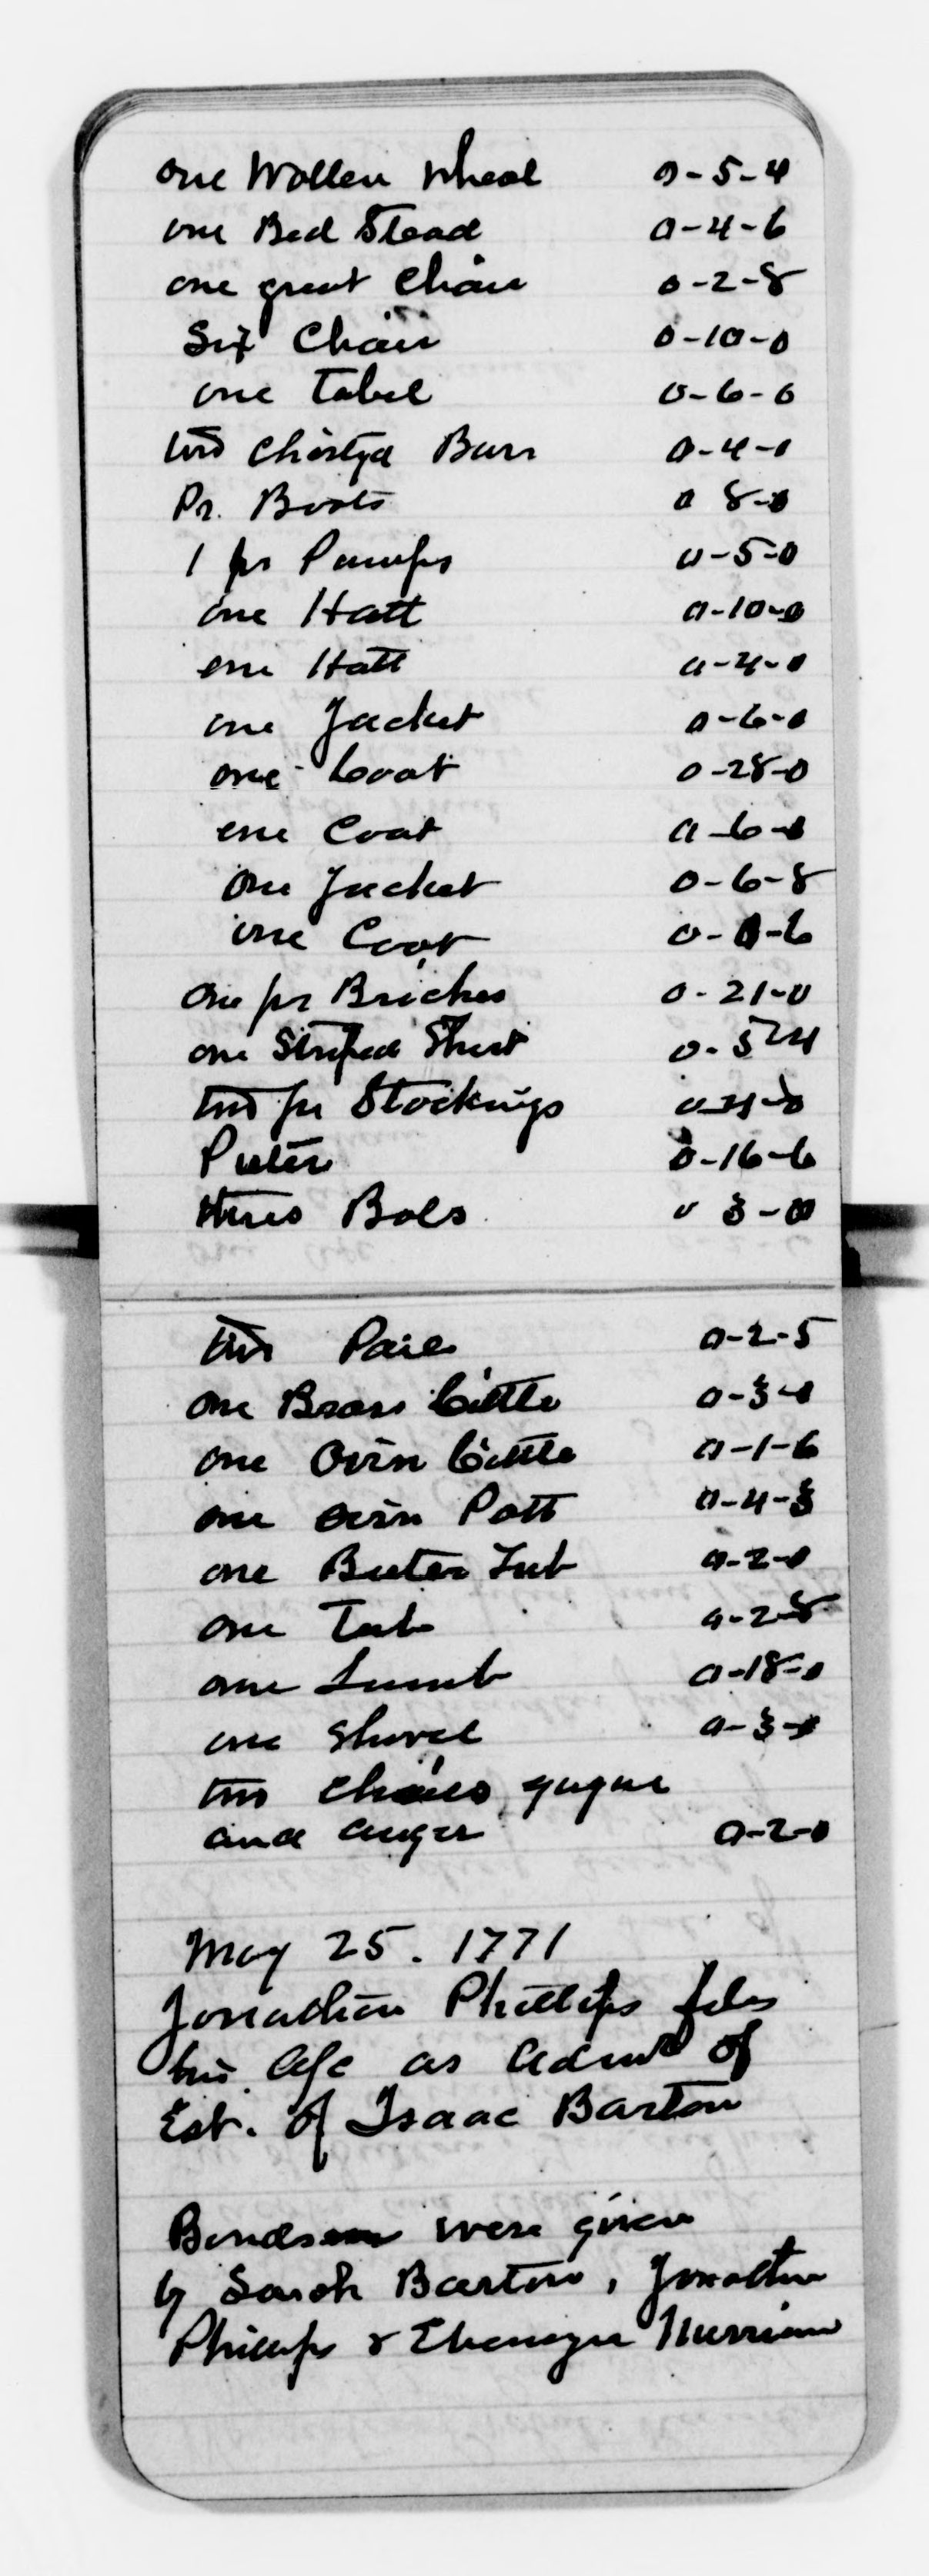 one Wollen Wheal 0-5-4
one Bed Stead 0-4-6
one great Chair 0-2-8
Six Chair 0-10-0
one Tabel 0-6-0
two Bars 0-4-0
Pr. Boots 0 8-0
1 pr Pumps 0-5-0
one Hatt 0-10-0
one Hatt 0-4-0
one Jacket 0-6-0
one Coat 0-28-0
one Coat 0-6-0
One Jacket 0-6-8
one Coat 0-0-6
One pr Briches 0-21-0
one Striped Shirt 0-5-4
two pr Stockings 0-4-0
Puter 0-16-6
three Bols 0 3-0
two Pails 0-2-5
one Brass Cittle 0-3-0
one Oirn Cittle 0-1-6
one oirn Pott 0-4-3
one Buter Tub 0-2-0
one Tub 0-2-8
one Lumb 0-18-0
one Shovel 0-3-0
two
and auger 0-2-0
May 25. 1771
Jonathan Phillips files
his a/c as Admr of
Est. of Isaac Barton
Bonds were given
by Sarah Barton, Jonathan
Phillips & Ebenezer Merriam